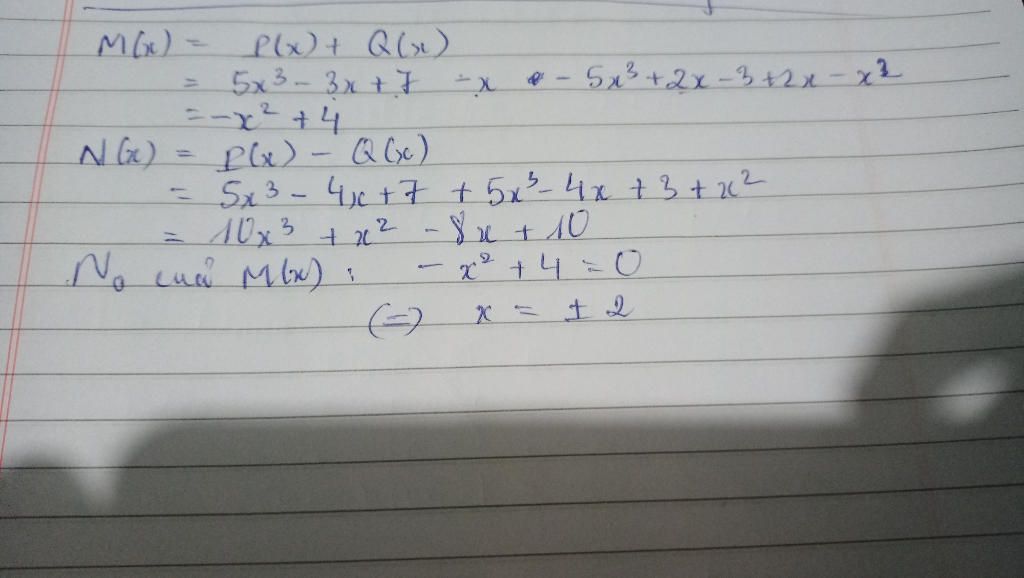 M(x) = P(x) + Q(x)
= 5x³ - 3x + 7 - x - 5x³ + 2x - 3 + 2x - x²
= -x² + 4
N(x) = P(x) - Q(x)
= 5x³ - 4x + 7 + 5x³ - 4x + 3 + x²
= 10x³ + x² - 8x + 10
No của M(x) : - x² + 4 = 0
(=) x = ± 2